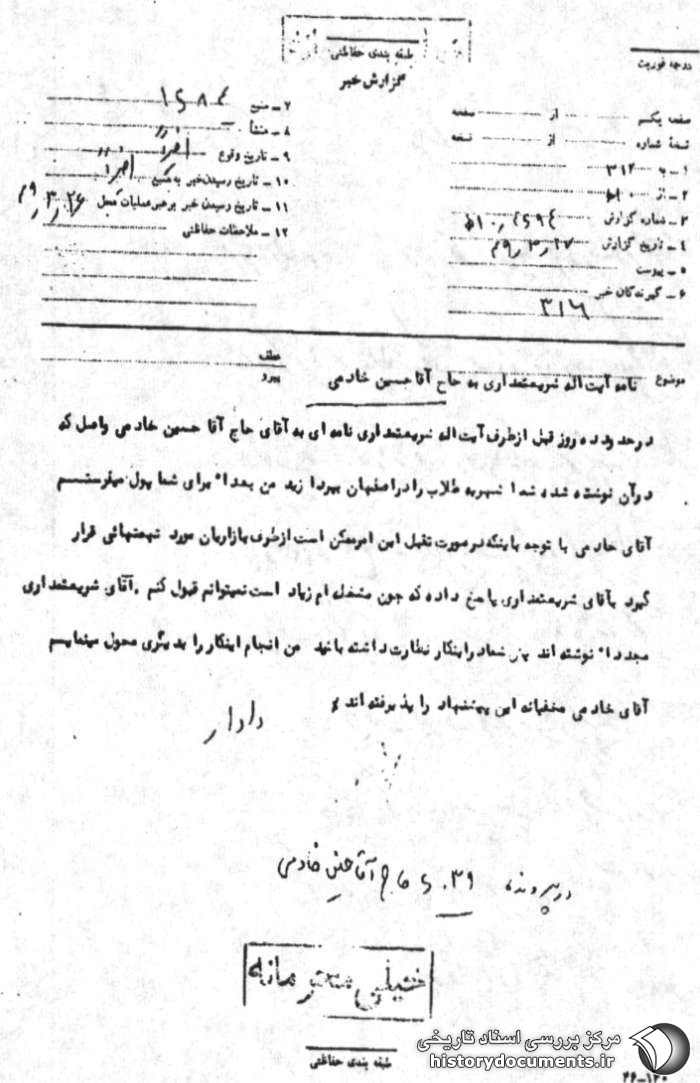 طبقه بندی حفاظتی
گزارش خبر
درجه فوریت
صفحه یکم از صفحه
نسخه شماره از نسخه
۱ - به ۳۱۲
۲ - از ۱۰ه‍
۳ - شماره گزارش
۴ - تاریخ گزارش ۴۹٫۳٫۲۷
۵ - پیوست
۶ - گیرندگان خبر
۳۱۶
۷ - منبع ۱۶۸۴
۸ - منشأ
۹ - تاریخ وقوع
۱۰ - تاریخ رسیدن خبر به منبع
۱۱ - تاریخ رسیدن خبر برهبر عملیات محل ۴۹٫۳٫۲۶
۱۲ - ملاحظات حفاظتی
عطف
پیرو
موضوع نامه آیت اله شریعتمداری به حاج آقا حسین خادمی
در حدود ده روز قبل از طرف آیت اله شریعتمداری نامه ای به آقای حاج آقا حسین خادمی واصل که
در آن نوشته شده شما شهریه طلاب را در اصفهان بپردازید من بعدا" برای شما پول میفرستم
آقای خادمی با توجه باینکه در صورت تقبل این امر ممکن است از طرف بازاریان مورد تهمتهائی قرار
گیرد بآقای شریعتمداری پاسخ داده که چون مشغله ام زیاد است نمیتوانم قبول کنم . آقای شریعتمداری
مجددا" نوشته اند پس شما در اینکار نظارت داشته باشید من انجام اینکار را بدیگری محول مینمایم
آقای خادمی مخفیانه این پیشنهاد را پذیرفته اند
در پرونده حاج آقا حسین خادمی
خیلی محرمانه
طبقه بندی حفاظتی
۴۶-۱۲۰
مرکز بررسی اسناد تاریخی
historydocuments.ir